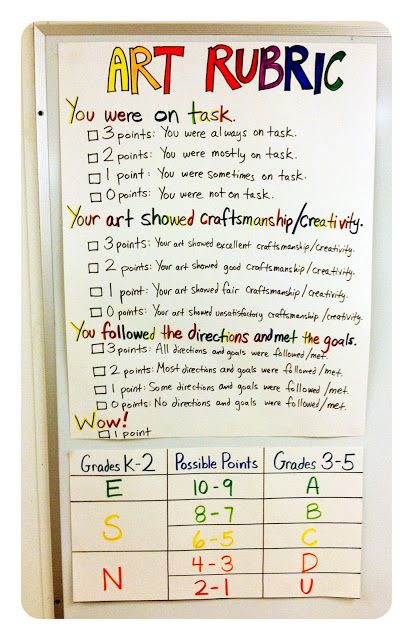 ART RUBRIC
You were on task.
3 points: You were always on task.
2 points: You were mostly on task.
1 point: You were sometimes on task.
0 points: You were not on task.
Your art showed craftsmanship/creativity.
3 points: Your art showed excellent craftsmanship/creativity.
2 points: Your art showed good craftsmanship/creativity.
1 point: Your art showed fair craftsmanship/creativity.
0 points: Your art showed unsatisfactory craftsmanship/creativity.
You followed the directions and met the goals.
3 points: All directions and goals were followed/met.
2 points: Most directions and goals were followed/met.
1 point: Some directions and goals were followed/met.
0 points: No directions and goals were followed/met.
Wow!
1 point
Grades K-2 Possible Points Grades 3-5
E 10-9 A
S 8-7 B
6-5 C
N 4-3 D
2-1 U